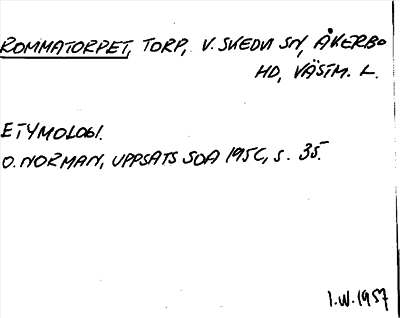 ROMMATORPET, TORP, V. SKEDVI SN, ÅKERBO
HD, VÄSTM. L.
ETYMOLOGI.
O. NORMAN, UPPSATS SOA 1956, S. 35.
I.W. 1957